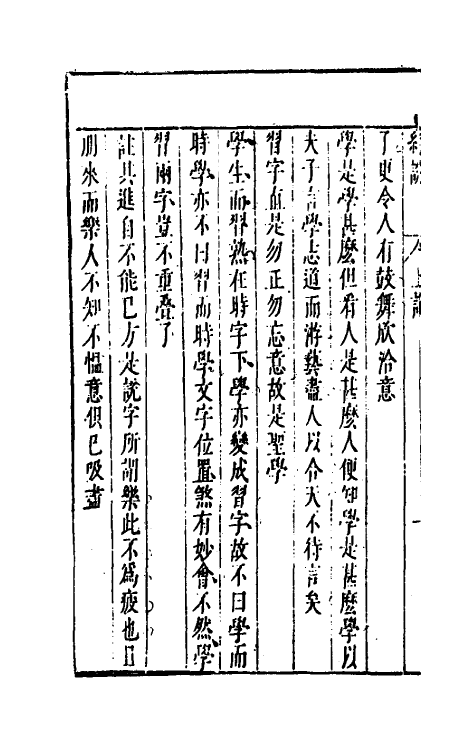 了更令人有鼓舞欣洽意
學是學甚麽但看人是甚麽人便知學是甚麽學以
夫子言學志道而游藝盡人以合天不待言矣
習字血是勿正勿忘意故是聖學
學生而習熟在時字下學亦變成習字故不曰學而
時學亦不曰習而時學文字位置煞有妙會不然學
習兩字豈不重疊了
註其進自不能已方是說字所謂樂此不爲疲也且
朋來而樂人不知不慍意俱已吸盡